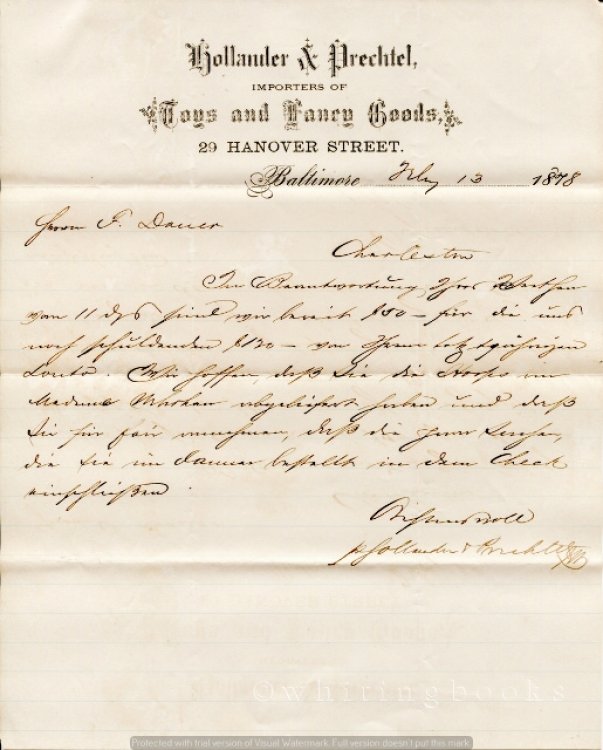 Hollander & Prechtel,
IMPORTERS OF
Toys and Fancy Goods,
29 HANOVER STREET.
Baltimore Feby 13 1878
Herrn F. Dauer
Charleston
In Beantwortung Ihres Werthen
von 11 ds sind wir bereit $80 – für die uns
noch schuldenden $120 – von Ihrem letztjährigen
Conto. Wir hoffen, daß Sie die an
Madame abgeliefert haben und daß
Sie für annehmen, daß die
die Sie im Januar bestellt in dem Check
einschließen.
Achtungsvoll
Hollander & Prechtel
©whiringbooks
Protected with trial version of Visual Watermark. Full version doesn't put this mark.